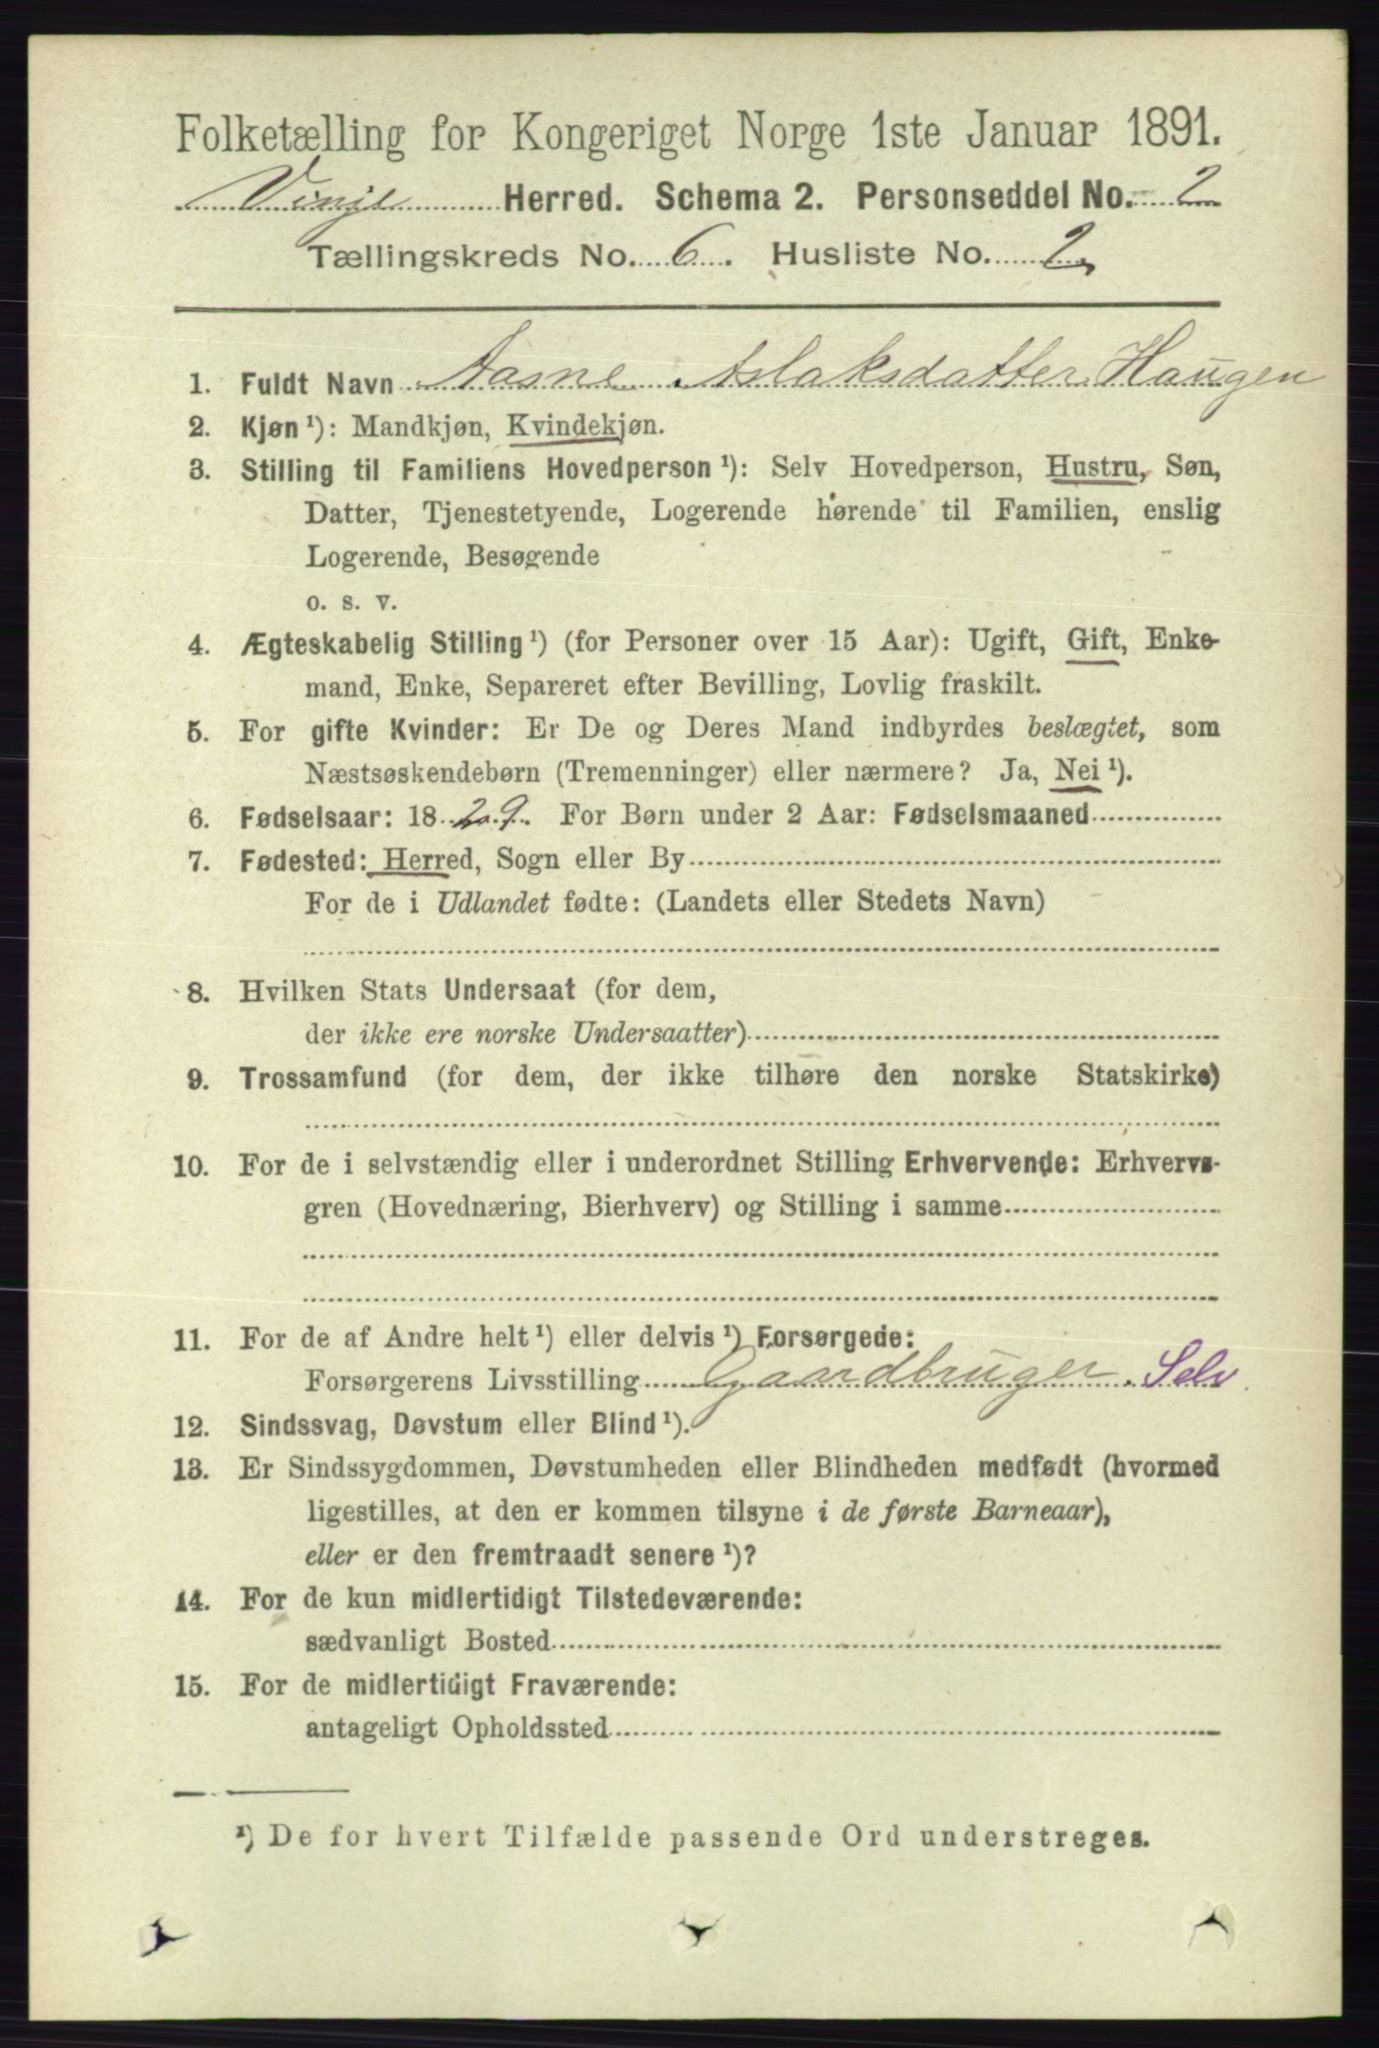 Folketælling for Kongeriget Norge 1ste Januar 1891.
Vinje Herred. Schema 2. Personseddel No. 2
Tællingskreds No. 6. Husliste No. 2
1. Fuldt Navn Aasne Aslaksdatter Haugen
2. Kjøn¹): Mandkjøn, Kvindekjøn.
3. Stilling til Familiens Hovedperson¹): Selv Hovedperson, Hustru, Søn,
Datter, Tjenestetyende, Logerende hørende til Familien, enslig
Logerende, Besøgende
o. s. v.
4. Ægteskabelig Stilling¹) (for Personer over 15 Aar): Ugift, Gift, Enke-
mand, Enke, Separeret efter Bevilling, Lovlig fraskilt.
5. For gifte Kvinder: Er De og Deres Mand indbyrdes beslægtet, som
Næstsøskendebørn (Tremenninger) eller nærmere? Ja, Nei¹).
6. Fødselsaar: 1829. For Børn under 2 Aar: Fødselsmaaned
7. Fødested: Herred, Sogn eller By
For de i Udlandet fødte: (Landets eller Stedets Navn)
8. Hvilken Stats Undersaat (for dem,
der ikke ere norske Undersaatter)
9. Trossamfund (for dem, der ikke tilhøre den norske Statskirke)
10. For de i selvstændig eller i underordnet Stilling Erhvervende: Erhvervs-
gren (Hovednæring, Bierhverv) og Stilling i samme
11. For de af Andre helt¹) eller delvis¹) Forsørgede:
Forsørgerens Livsstilling Gaardbruger. Selv.
12. Sindssvag, Døvstum eller Blind¹).
13. Er Sindssygdommen, Døvstumheden eller Blindheden medfødt (hvormed
ligestilles, at den er kommen tilsyne i de første Barneaar),
eller er den fremtraadt senere¹)?
14. For de kun midlertidigt Tilstedeværende:
sædvanligt Bosted
15. For de midlertidigt Fraværende:
antageligt Opholdssted
¹) De for hvert Tilfælde passende Ord understreges.